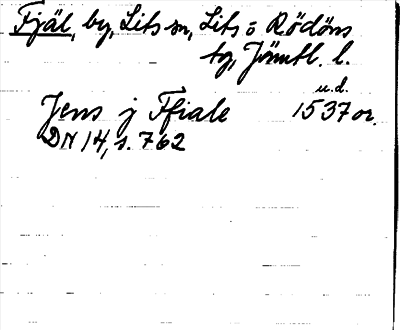 Fjäl, by, Lits sn, Lits o Rödöns
tg, Jämtl. l.
u.d.
Jens j Ffiale 1537 or.
DN 14, s. 762